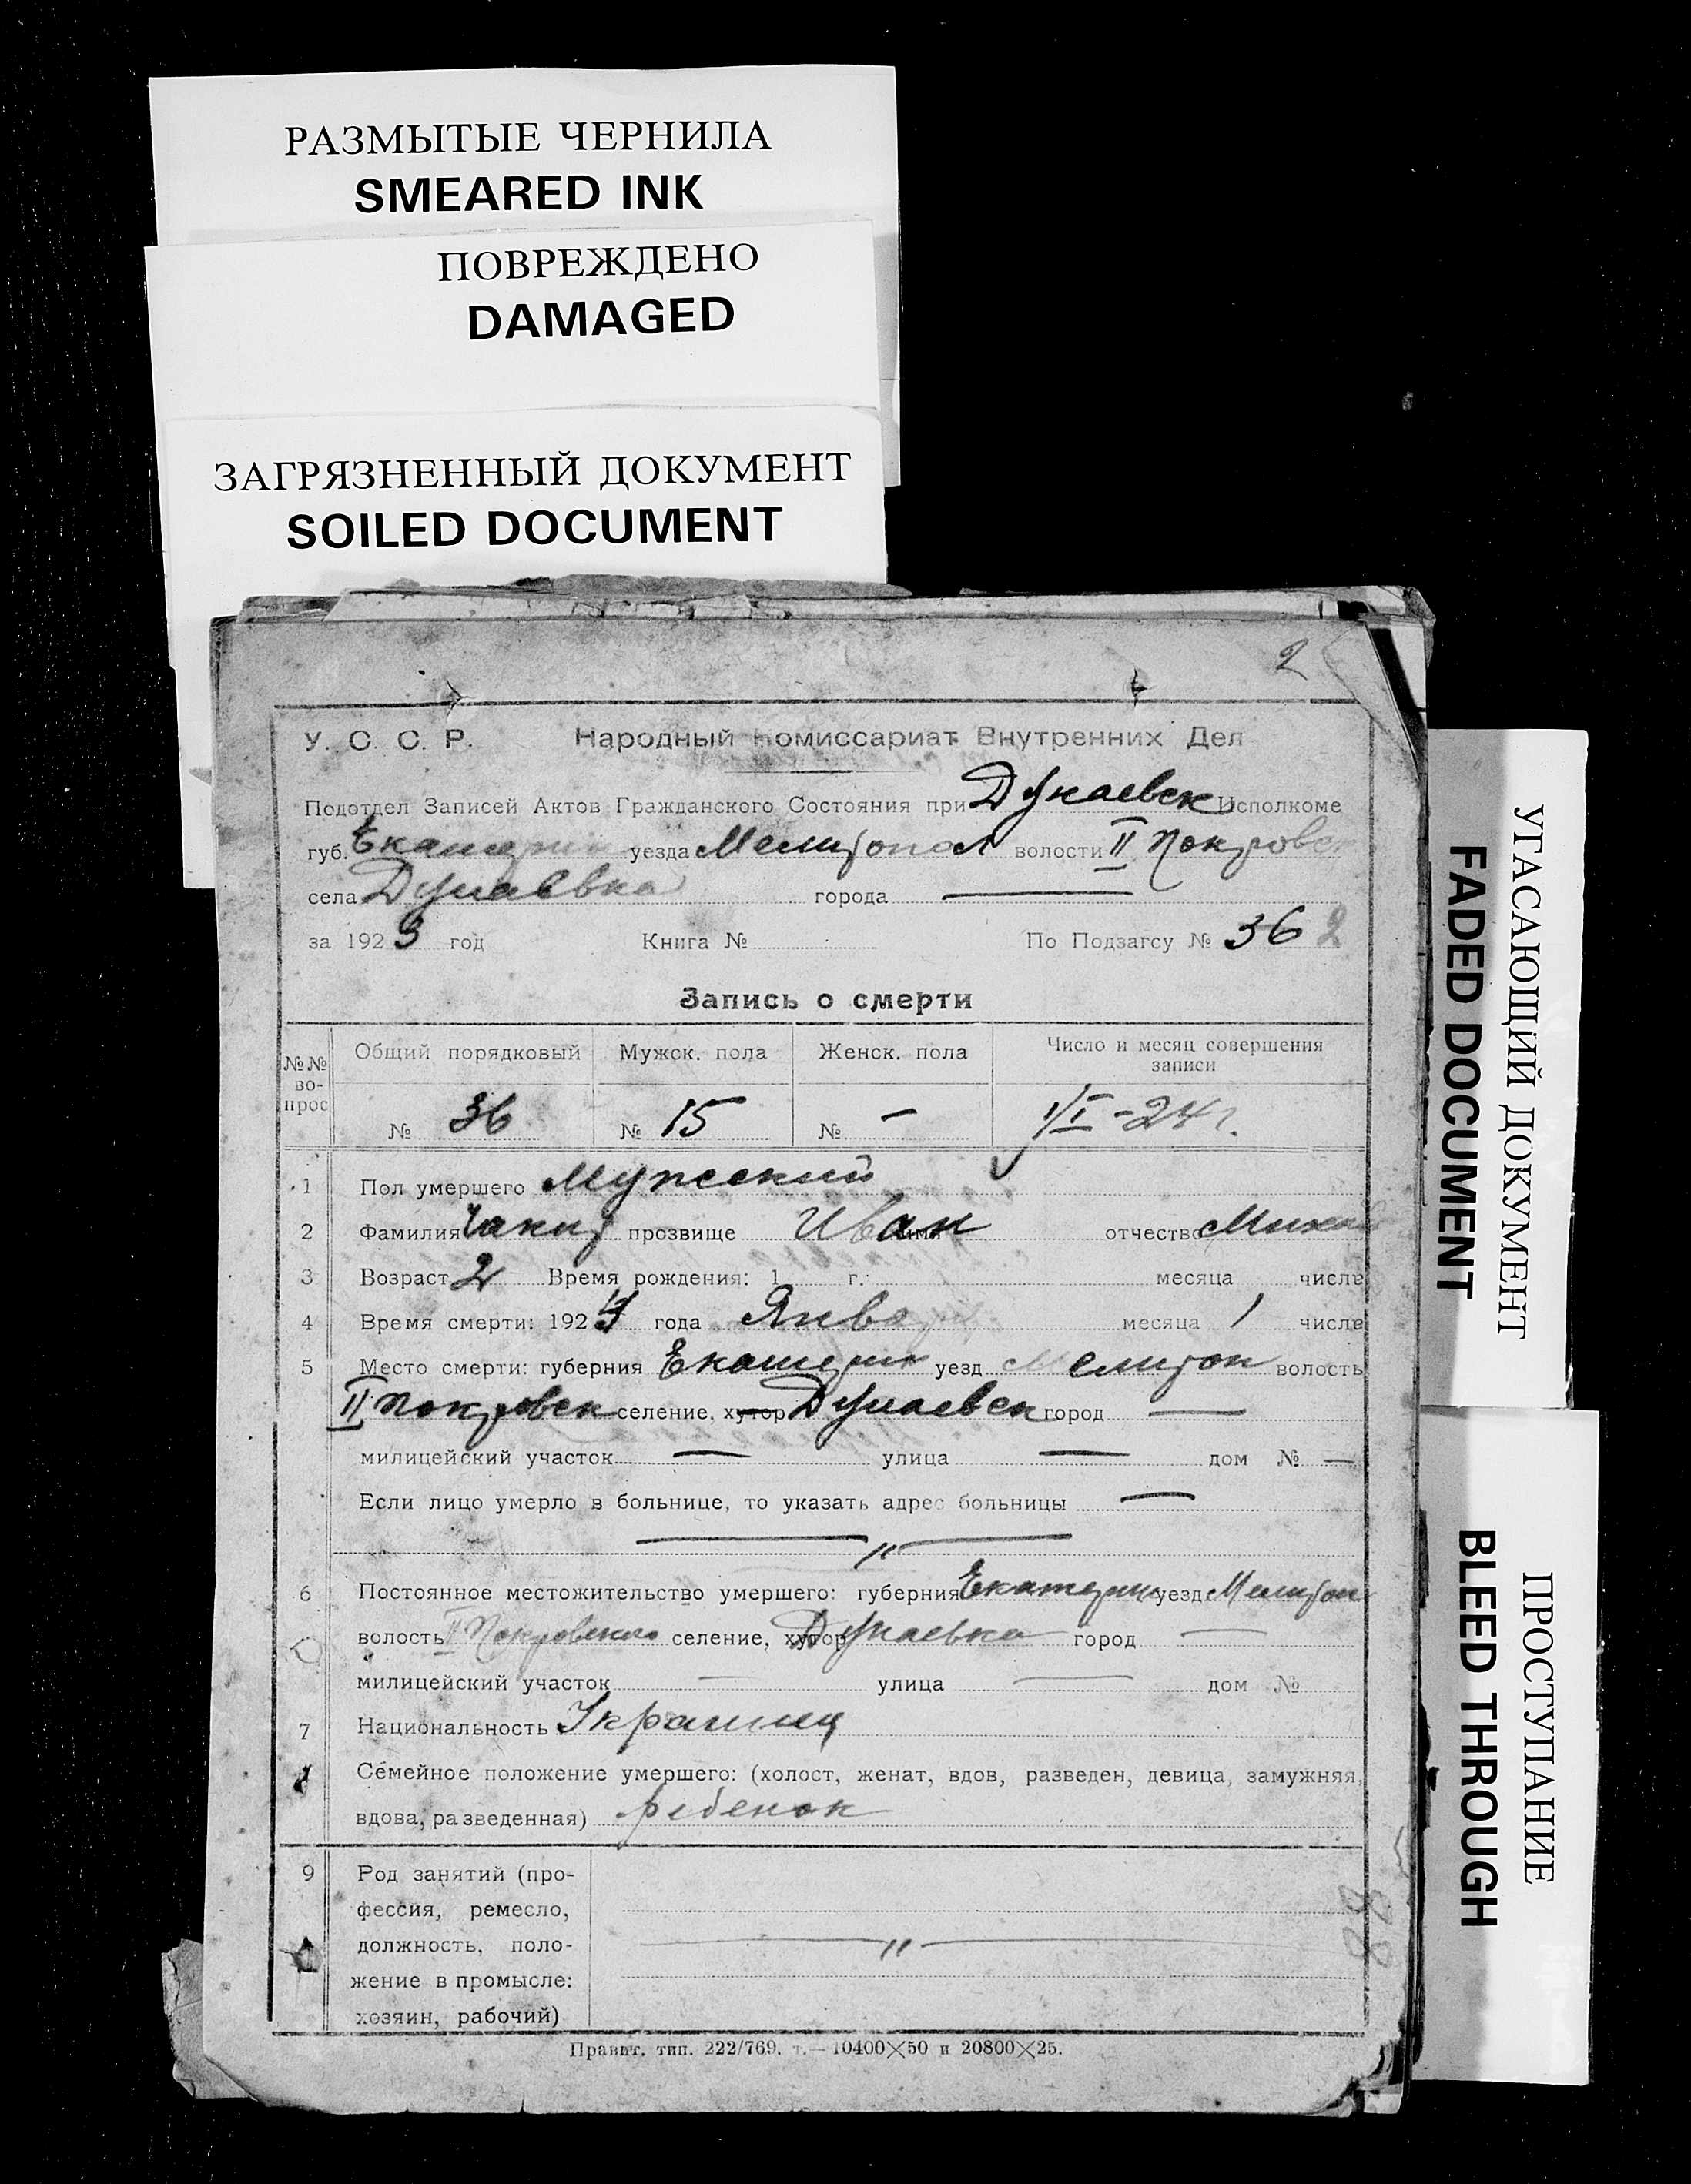 РАЗМЫТЫЕ ЧЕРНИЛА
SMEARED INK
ПОВРЕЖДЕНО
DAMAGED
ЗАГРЯЗНЕННЫЙ ДОКУМЕНТ
SOILED DOCUMENT
2
У. С. С. Р. Народный Комиссариат Внутренних Дел
Подотдел Записей Актов Гражданского Состояния при Дунаевск Исполкоме
губ. Екатерин уезда Мелитопол волости II Покровс
села Дунаевка города —
за 1923 год Книга № По Подзагсу № 36 2
Запись о смерти
№№ вопрос Общий порядковый Мужск. пола Женск. пола Число и месяц совершения записи
№ 36 № 15 № — 1/I-24 г.
1 Пол умершего Мужский
2 Фамилия прозвище Иван имя отчество Михай
3 Возраст 2 Время рождения: 1 г. месяца числа
4 Время смерти: 1924 года Янва месяца 1 числа
5 Место смерти: губерния Екатерин уезд Мелитоп волость
II Покровск селение, хутор Дунаевск город —
милицейский участок — улица — дом № —
Если лицо умерло в больнице, то указать адрес больницы —
— " —
6 Постоянное местожительство умершего: губерния Екатерин уезд Мелитоп
волость II Покровского селение, хутор Дунаевка город —
милицейский участок — улица — дом №
7 Национальность Украинец
Семейное положение умершего: (холост, женат, вдов, разведен, девица, замужняя,
вдова, разведенная) ребенок
9 Род занятий (про-
фессия, ремесло,
должность, поло- — " —
жение в промысле:
хозяин, рабочий)
88
Правит. тип. 222/769. т.—10400×50 и 20800×25.
УГАСАЮЩИЙ ДОКУМЕНТ
FADED DOCUMENT
ПРОСТУПАНИЕ
BLEED THROUGH